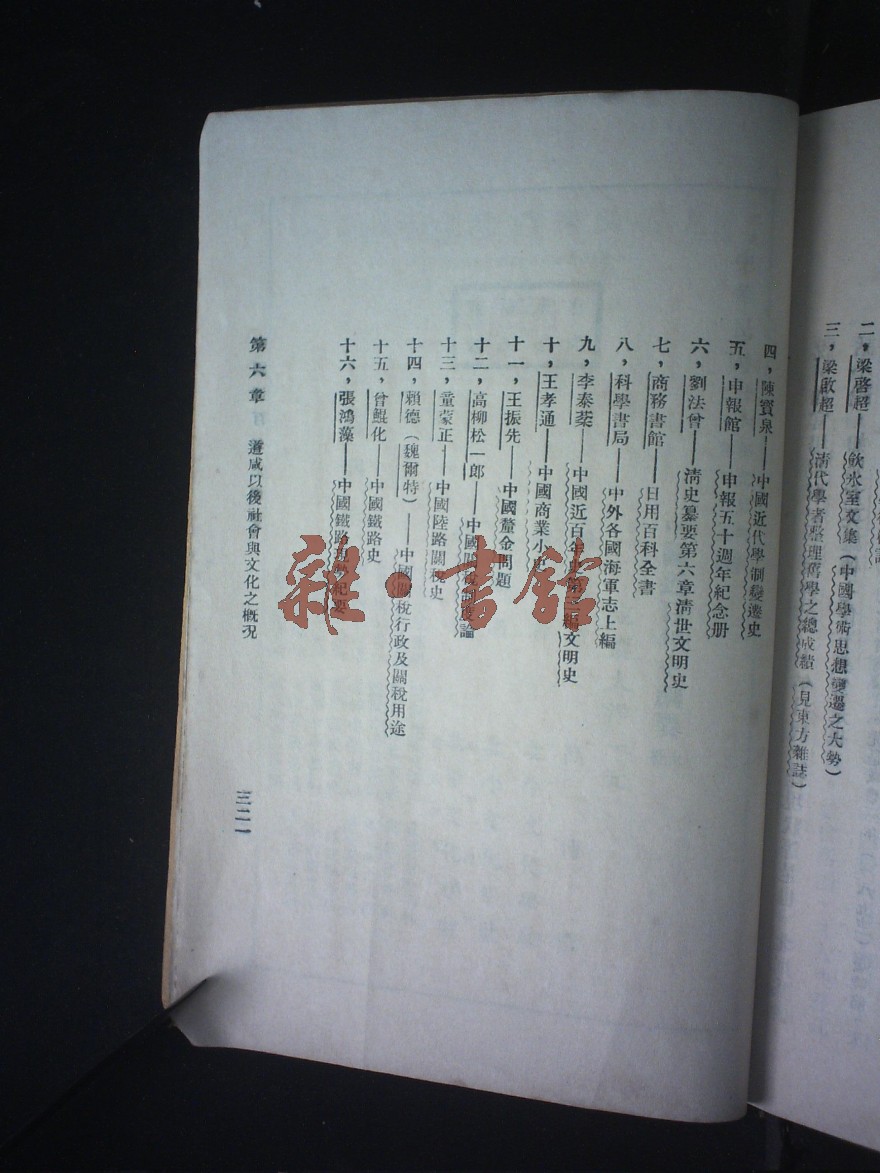 二，梁啓超——飲冰室文集（中國學術思想變遷之大勢）
三，梁啟超——清代學者整理舊學之總成績（見東方雜誌）
四，陳寶泉——中國近代學制變遷史
五，申報館——申報五十週年紀念册
六，劉法曾——清史纂要第六章清世文明史
七，商務書館——日用百科全書
八，科學書局——中外各國海軍志上編
九，李泰棻——中國近百年史第三編文明史
十，王孝通——中國商業小史
十一，王振先——中國釐金問題
十二，高柳松一郎——中國關稅制度論
十三，童蒙正——中國陸路關稅史
十四，賴德（魏爾特）——中國關稅行政及關稅用途
十五，曾鯤化——中國鐵路史
十六，張鴻藻——中國鐵路現勢紀要
第六章 道咸以後社會與文化之概況
三二一
雜·書館